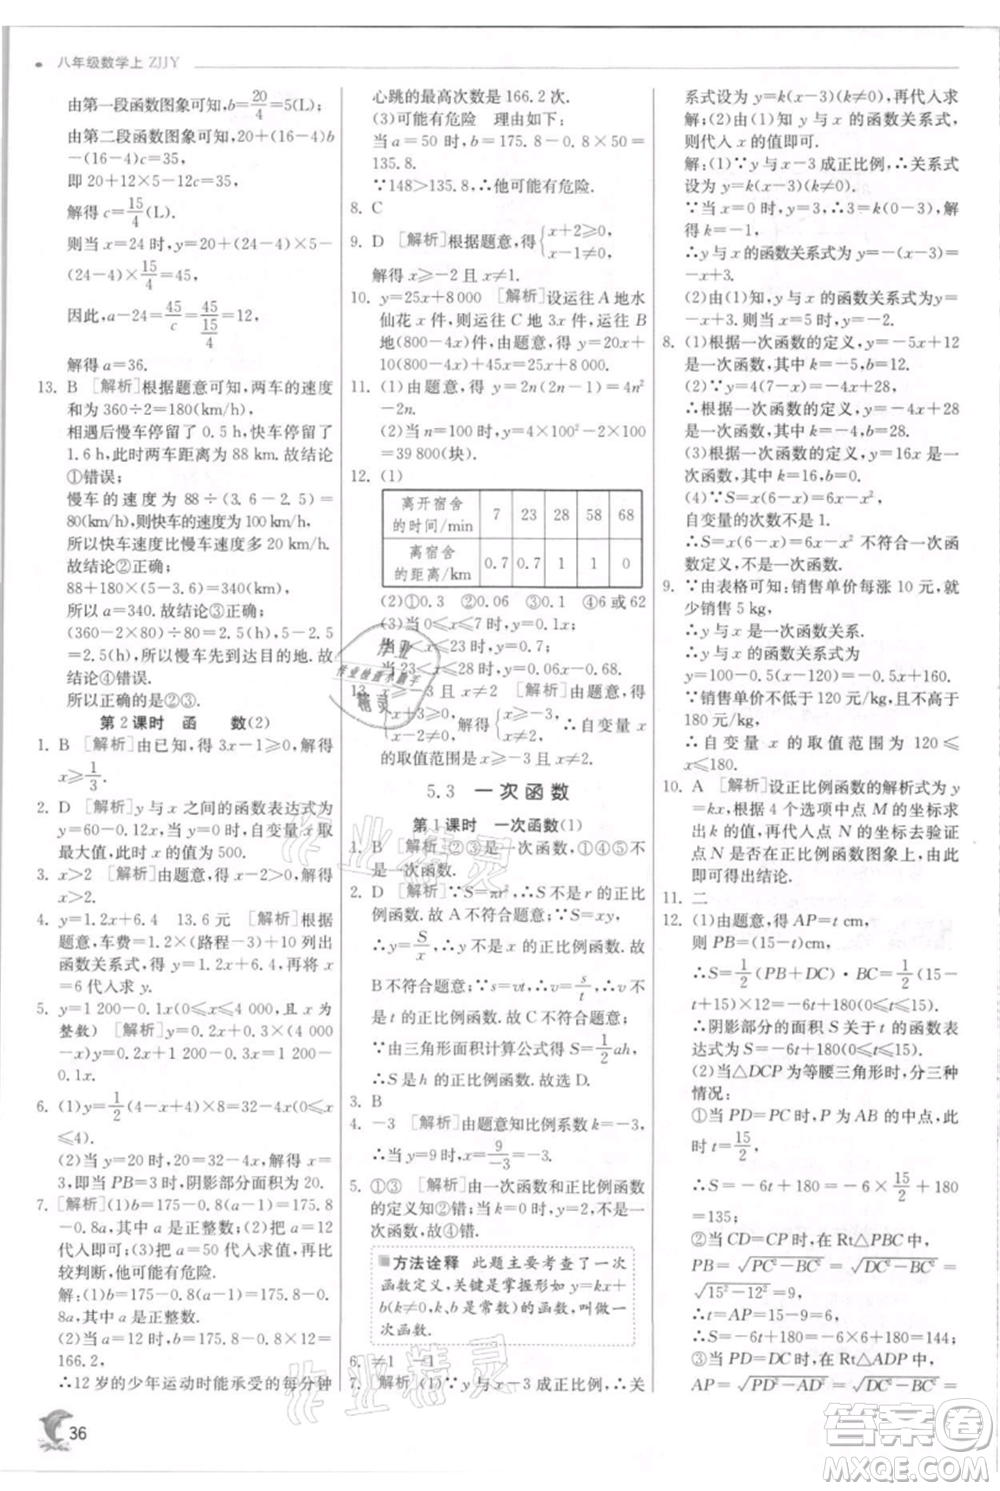 八年级数学上 ZJJY
由第一段函数图象可知,b=20/4=5(L);
由第二段函数图象可知,20+(16-4)b
-(16-4)c=35,
即 20+12×5-12c=35,
解得 c=15/4(L).
则当 x=24 时,y=20+(24-4)×5-
(24-4)×15/4=45,
因此,a-24=45/c=45/(15/4)=12,
解得 a=36.
13. B [解析]根据题意可知,两车的速度
和为 360÷2=180(km/h),
相遇后慢车停留了 0.5 h,快车停留了
1.6 h,此时两车距离为 88 km,故结论
①错误;
慢车的速度为 88÷(3.6-2.5)=
80(km/h),则快车的速度为 100 km/h,
所以快车速度比慢车速度多 20 km/h.
故结论②正确;
88+180×(5-3.6)=340(km),
所以 a=340.故结论③正确;
(360-2×80)÷80=2.5(h),5-2.5
=2.5(h),所以慢车先到达目的地.故
结论④错误.
所以正确的是②③.
第2课时 函 数(2)
1. B [解析]由已知,得 3x-1≥0,解
得 x≥1/3.
2. D [解析]y 与 x 之间的函数表达式为
y=60-0.12x,
最大值,此时y的值为500.
3. x>2 [解析]由题意,得 x-2>0,
∴x>2.
4. y=1.2x+6.4 13.6 元 [解析]根据
题意,车费=1.2×(路程-3)+10 列出
函数关系式,得 y=1.2x+6.4.再把 x
=6代入求 y.
5. y=1 200-0.1x(0≤x≤4 000,且 x 为
整数) [解析]y=0.2x+0.3×(4 000
-x)=0.2x+1 200-0.3x=1 200-
0.1x.
6. (1)y=1/2(4-x+4)×8=32-4x(0≤x
≤4).
(2)当 y=20 时,20=32-4x,解得 x=
3,即当 PB=3 时,阴影部分面积为 20.
7. [解析](1)b=175-0.8(a-1)=175.8-
0.8a,其中 a 是正整数.(2)把 a=12
代入代数式,(3)把 a=50 代入求值,再比
较判断,他可能有危险.
解:(1)b=175-0.8(a-1)=175.8-
0.8a,其中 a 是正整数.
(2)当 a=12 时,b=175.8-0.8×12=
166.2,
∴12 岁的少年运动时能承受的每分钟
心跳的最高次数是 166.2 次.
(3)可能有危险 理由如下:
当 a=50 时,b=175.8-0.8×50=
135.8.
∵148>135.8,∴他可能有危险.
8. C
9. D [解析]根据题意,得{x+2≥0, x-1≠0,
解得 x≥-2 且 x≠1.
10. y=25x+8 000 [解析]设运往 A 地水
仙花 x 件,则运往 C 地 3x 件,运往 B
地(800-4x)件,由题意,得 y=20x+
10(800-4x)+45x=25x+8 000.
11. (1)由题意,得 y=2n(2n-1)=4n²
-2n.
(2)当 n=100 时,y=4×100²-2×100
=39 800(块).
12. (1)
离开宿舍的时间/min 7 23 28 58 68
离宿舍的距离/km 0.7 0.7 1 1 0.7
(2)①0.3 ②0.06 ③0.1 ④6或62
(3)当 0≤x≤7 时,y=0.1x;
当 7<x≤23 时,y=0.7;
当 23<x≤28 时,y=0.1x-1.6.
13. x≥-3 且 x≠2 [解析]由题意,得
x≠0,解得
∴x≥-3 且 x≠2.
5.3 一次函数
第1课时 一次函数(1)
1. B [解析]②③是一次函数,①④⑤不
是一次函数.
2. D [解析]∵S=πr²,∴S不是r的正比
例函数.故 A 不符合题意;∵S=xy,
∴y=S/x,∴y 不是 x 的正比例函数.故
B 不符合题意;∵S=vt,∴v=S/t,∴v
不是 t 的正比例函数.故 C 不符合题意;
∵由三角形面积计算公式得 S=1/2ah,
∴S 是 h 的正比例函数.故选 D.
3. B
4. -3 [解析]由题意知比例系数 k=-3,
∴当 y=9 时,x=9/-3=-3.
5. ①③ [解析]由一次函数和正比例函数
的定义知②错;当 k=0,y=2 不是一次函
数,故④错.
方法诠释 此题主要考查了一次
函数定义,关键是掌握形如 y=kx+
b(k≠0,k,b 是常数)的函数,叫做一
次函数.
6. ≠1 -1
7. [解析](1)∵y 与 x-3 成正比例,∴关
系式设为 y=k(x-3)(k≠0),再代入求
解;(2)由(1)知 y 与 x 的函数关系式,
则代入 x 的值即可.
解:(1)∵y 与 x-3 成正比例,∴关系式
设为 y=k(x-3)(k≠0).
∵当 x=0 时,y=3,∴3=k(0-3),解
得 k=-1,
∴y 与 x 的函数关系式为 y=-(x-3)=
-x+3.
(2)由(1)知 y 与 x 的函数关系式为 y=
-x+3.
8. (1)根据一次函数的定义,y=-5x+12
是一次函数,其中 k=-5,b=12.
(2)∵y=4(7-x)=-4x+28,
∴根据一次函数的定义,y=-4x+28
是一次函数,其中 k=-4,b=28.
(3)根据一次函数的定义,
是一次函数,其中
(4)∵S=x(6-x)=6x-x²,
自变量的次数不是 1.
∴S=x(6-x)=6x-x² 不是一次函
数.
9. 由表格可知:销售单价每涨 10 元,就
少销售 5 kg,
∴y 与 x 是一次函数关系.
∴y 与 x 的函数关系式为
y=100-0.5(x-120)=-0.5x+160.
∵销售单价不低于 120 元/kg 且不高于
180 元/kg,
∴自变量 x 的取值范围为 120≤x
≤180.
10. A [解析]设正比例函数的解析式为 y
=kx,根据 4 个选项中点 M 的坐标求
出 k,再代入点 N 的坐标去验证
点 N 是否在正比例函数图象上,由此
即可得出结论.
11. 二
12. (1)由题意,得 AP=t cm,
则 PB=(15-t)cm,
∴S=1/2(PB+DC)·BC=1/2(15-
t+15)×12=-6t+180(0≤t≤15).
∴阴影部分的面积 S 关于 t 的函数表
达式为 S=-6t+180(0≤t≤15).
(2)当△DCP 为等腰三角形时,分三种
情况:
①当 PD=PC 时,P 为 AB 的中点,此
时 t=15/2,
∴S=-6t+180=-6×15/2+180=
135;
②当 CD=CP 时,在 Rt△CPB 中,
PB=√PC²-BC²=√DC²-BC²=
√15²-12²=9,
∴t=AP=15-9=6,
∴S=-6t+180=-6×6+180=144;
③当 PD=CD 时,在 Rt△ADP 中,
AP=√PD²-AD²=√DC²-BC²=
36
作业精灵
作业检查小助手
答案圈
MXQE.COM